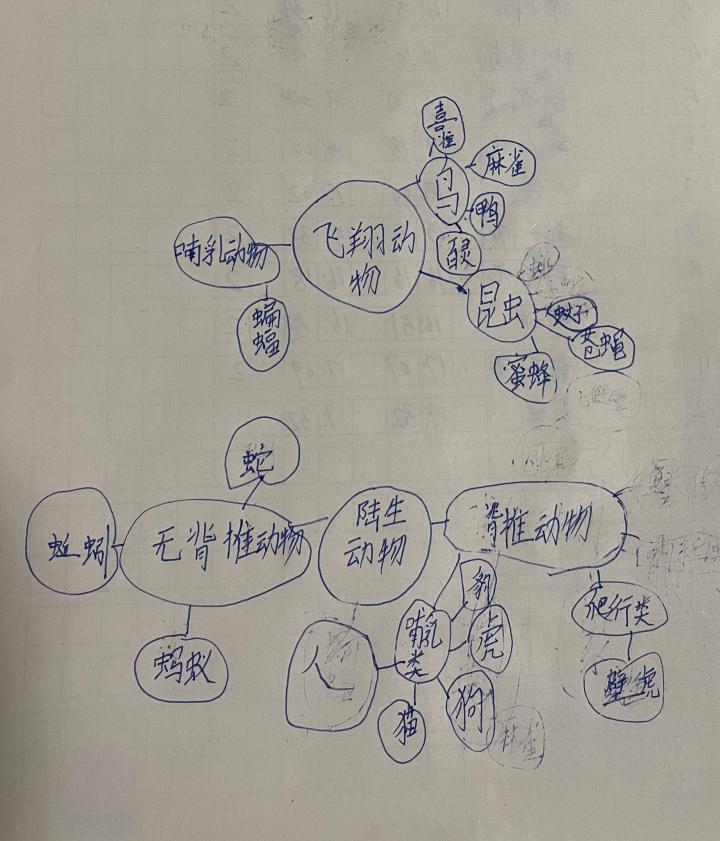 喜
鹊
麻雀
鸟
鸭
飞翔动
物
哺乳动物
昆虫
蚊子
苍蝇
蝙
蝠
蜜蜂
蛇
陆生
动物
背推动物
蚯蚓
无背推动物
豹
爬行类
哺乳
类
虎
人
蚂蚁
壁虎
狗
猫
麻雀